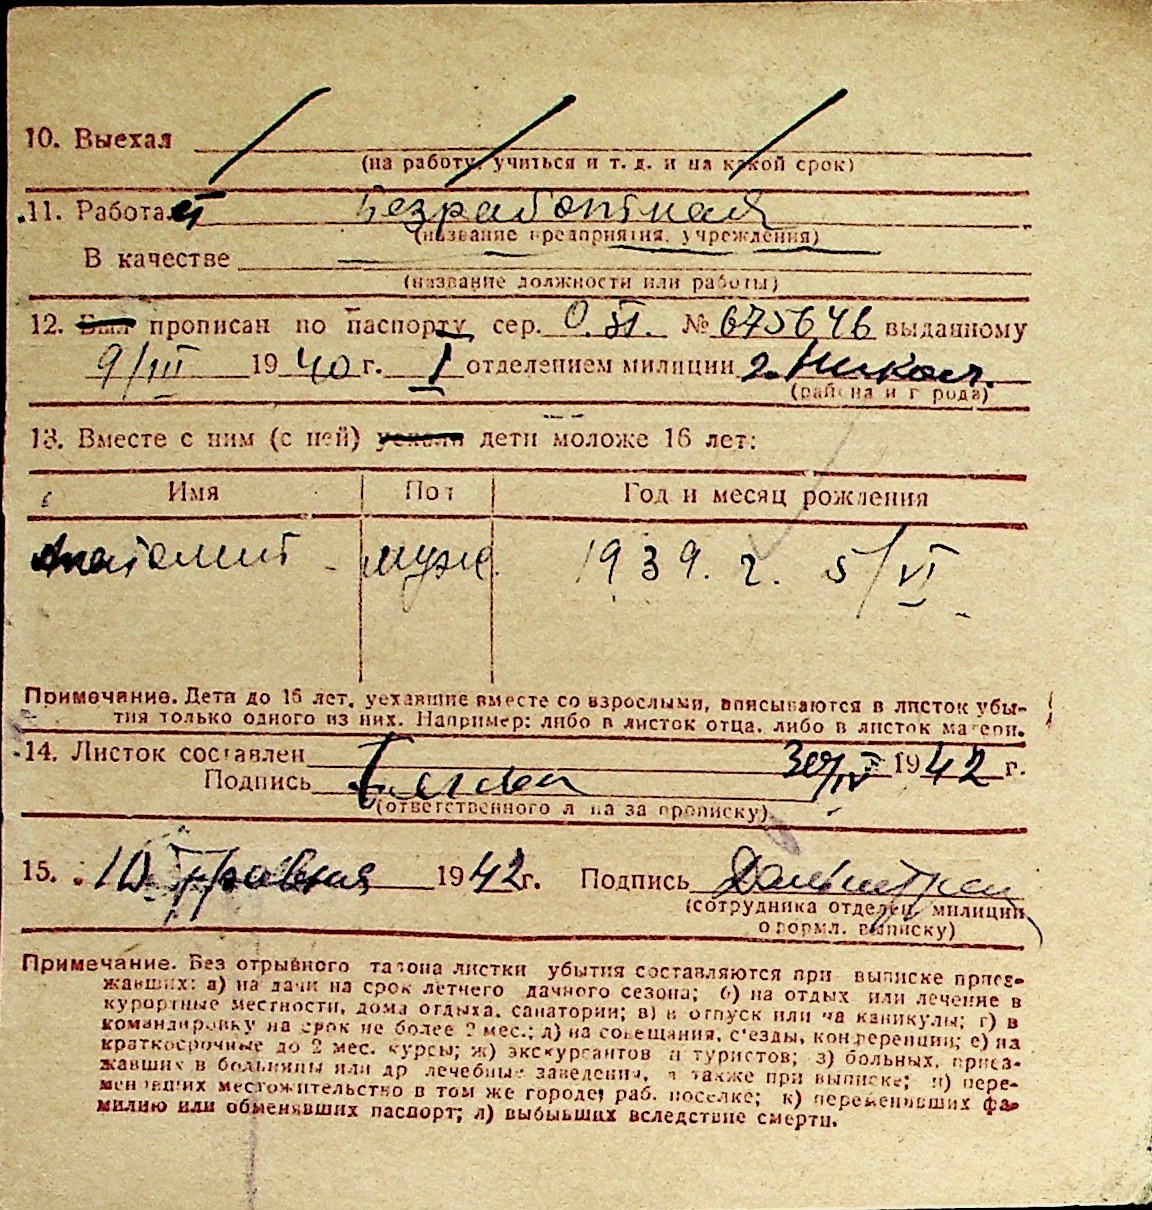 10. Выехал
(на работу, учиться и т. д. и на какой срок)
11. Работает Безработная
(название предприятия, учреждения)
В качестве
(название должности или работы)
12. Был прописан по паспорту сер. № 675646 выданному
9/III 1940 г. I отделением милиции г. Никол.
(района и города)
13. Вместе с ним (с ней) уехали дети моложе 16 лет:
Имя Пол Год и месяц рождения
Анатолий муж. 1939. г. 5/VI
Примечание. Дети до 16 лет, уехавшие вместе со взрослыми, вписываются в листок убы-
тия только одного из них. Например: либо в листок отца, либо в листок матери.
14. Листок составлен 30/IV 1942 г.
Подпись
(ответственного лица за прописку)
15. 10 травня 1942 г. Подпись
(сотрудника отделен. милиции,
оформл. выписку)
Примечание. Без отрывного талона листки убытия составляются при выписке приез-
жавших: а) на дачи на срок летнего дачного сезона; б) на отдых или лечение в
курортные местности, дома отдыха, санатории; в) в отпуск или на каникулы; г) в
командировку на срок не более 2 мес.; д) на совещания, с'езды, конференции; е) на
краткосрочные до 2 мес. курсы; ж) экскурсантов и туристов; з) больных, приез-
жавших в больницы или др лечебные заведения, а также при выписке; и) пере-
менивших местожительство в том же городе, раб. поселке; к) переменивших фа-
милию или обменявших паспорт; л) выбывших вследствие смерти.